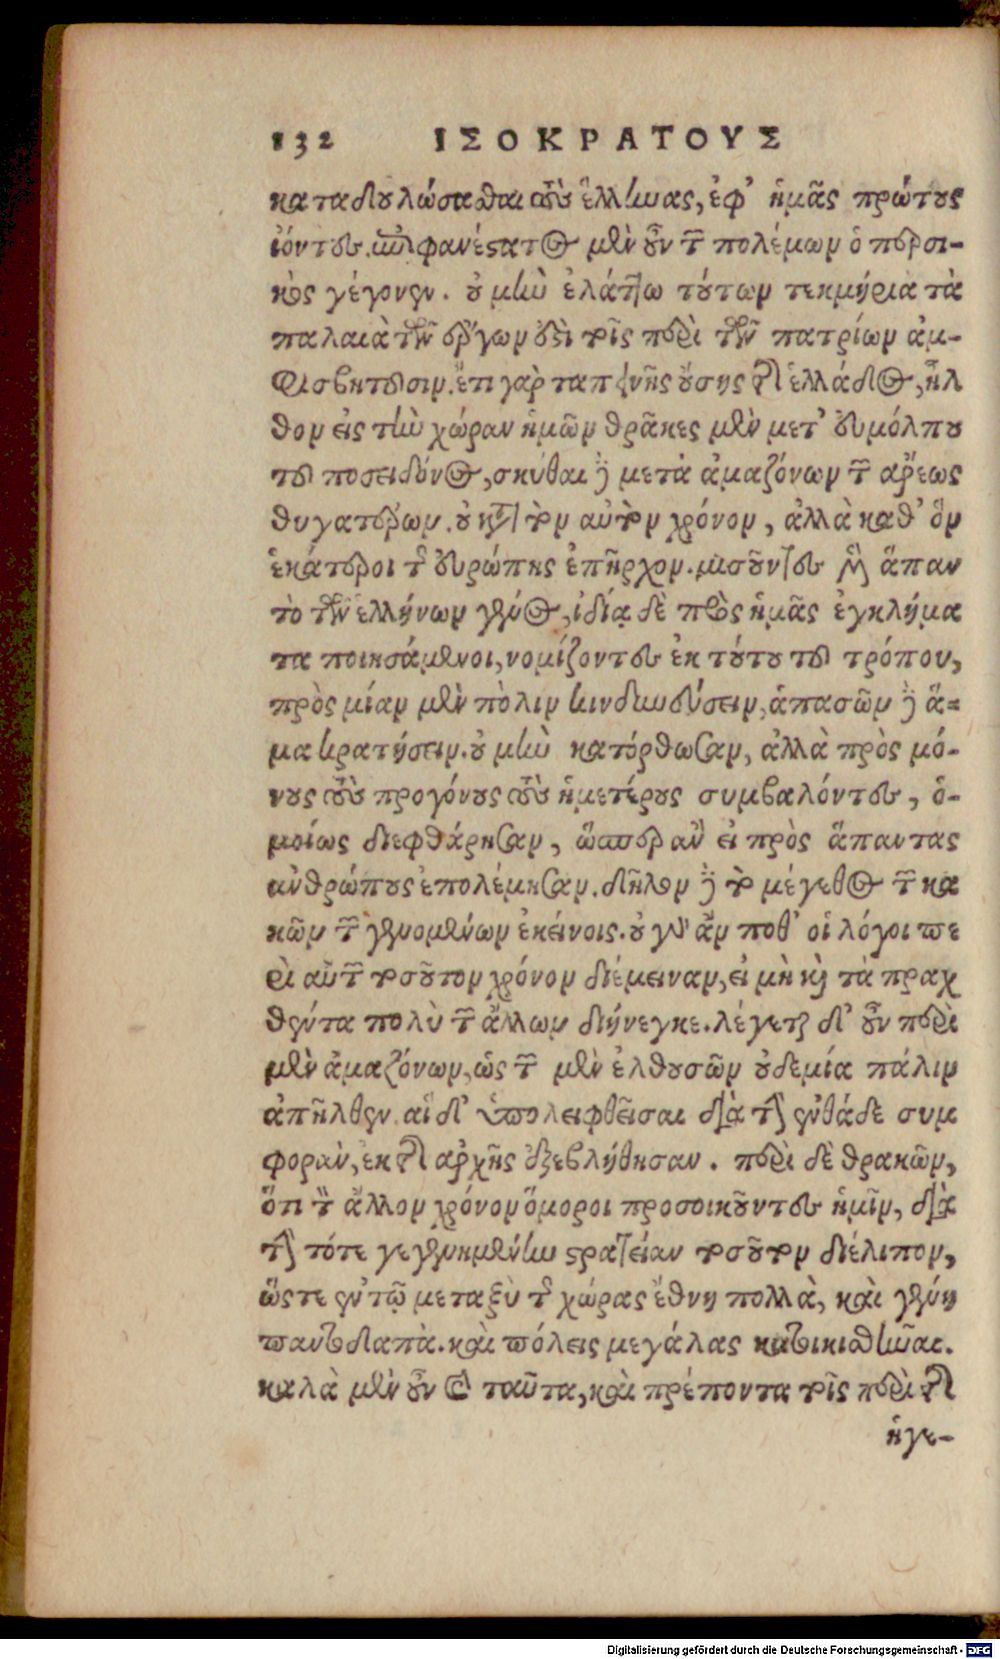 132 ΙΣΟΚΡΑΤΟΥΣ
καταδουλώσασθαι τοὺς ἕλληνας, ἐφ' ἡμᾶς πρώτους
ἰόντες. ἐπιφανέστατος μὲν οὖν τῶν πολέμων ὁ περσι-
κὸς γέγονεν. οὐ μὴν ἐλάττω τούτων τεκμήρια τὰ
παλαιὰ τῶν ἔργων ἐστὶ τοῖς περὶ τῶν πατρίων ἀμ-
φισβητοῦσιν. ἔτι γὰρ ταπεινῆς οὔσης τῆς ἑλλάδος, ἦλ
θον εἰς τὴν χώραν ἡμῶν θρᾶκες μὲν μετ' εὐμόλπου
τοῦ ποσειδῶνος, σκύθαι δὲ μετὰ ἀμαζόνων τῶν ἄρεως
θυγατέρων. οὐ κατὰ τὸν αὐτὸν χρόνον, ἀλλὰ καθ' ὃν
ἑκάτεροι τῆς εὐρώπης ἐπῆρχον. μισοῦντες μὲν ἅπαν
τὸ τῶν ἑλλήνων γένος, ἰδίᾳ δὲ πρὸς ἡμᾶς ἐγκλήμα
τα ποιησάμενοι, νομίζοντες ἐκ τούτου τοῦ τρόπου,
πρὸς μίαν μὲν πόλιν κινδυνεύσειν, ἁπασῶν δὲ ἅ-
μα κρατήσειν. οὐ μὴν κατόρθωσαν, ἀλλὰ πρὸς μό-
νους τοὺς προγόνους τοὺς ἡμετέρους συμβαλόντες, ὁ-
μοίως διεφθάρησαν, ὥσπερ ἂν εἰ πρὸς ἅπαντας
ἀνθρώπους ἐπολέμησαν. δῆλον δὲ τὸ μέγεθος τῶν κα
κῶν τῶν γενομένων ἐκείνοις. οὐ γὰρ ἄν ποθ' οἱ λόγοι πε
ρὶ αὐτῶν τοσοῦτον χρόνον διέμειναν, εἰ μὴ καὶ τὰ πραχ
θέντα πολὺ τῶν ἄλλων διήνεγκε. λέγεται δ' οὖν περὶ
μὲν ἀμαζόνων, ὡς τῶν μὲν ἐλθουσῶν οὐδεμία πάλιν
ἀπῆλθεν. αἱ δ' ὑπολειφθεῖσαι διὰ τὴν ἐνθάδε συμ
φορὰν, ἐκ τῆς ἀρχῆς ἐξεβλήθησαν. περὶ δὲ θρακῶν,
ὅτι τὸν ἄλλον χρόνον ὅμοροι προσοικοῦντες ἡμῖν, διὰ
τὴν τότε γεγενημένην στρατείαν τοσοῦτον διέλιπον,
ὥστε ἐν τῷ μεταξὺ τῆς χώρας ἔθνη πολλὰ, καὶ γένη
παντοδαπὰ. καὶ πόλεις μεγάλας κατοικισθῆναι.
καλὰ μὲν οὖν καὶ ταῦτα, καὶ πρέποντα τοῖς περὶ τῆς
ἡγε-
Digitalisierung gefördert durch die Deutsche Forschungsgemeinschaft - DFG